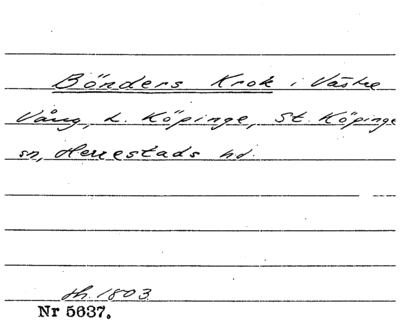 Bönders Krok i Västre
Vång, L. Köpinge, St. Köpinge
sn, Herrestads hd.
sh. 1803
Nr 5637.